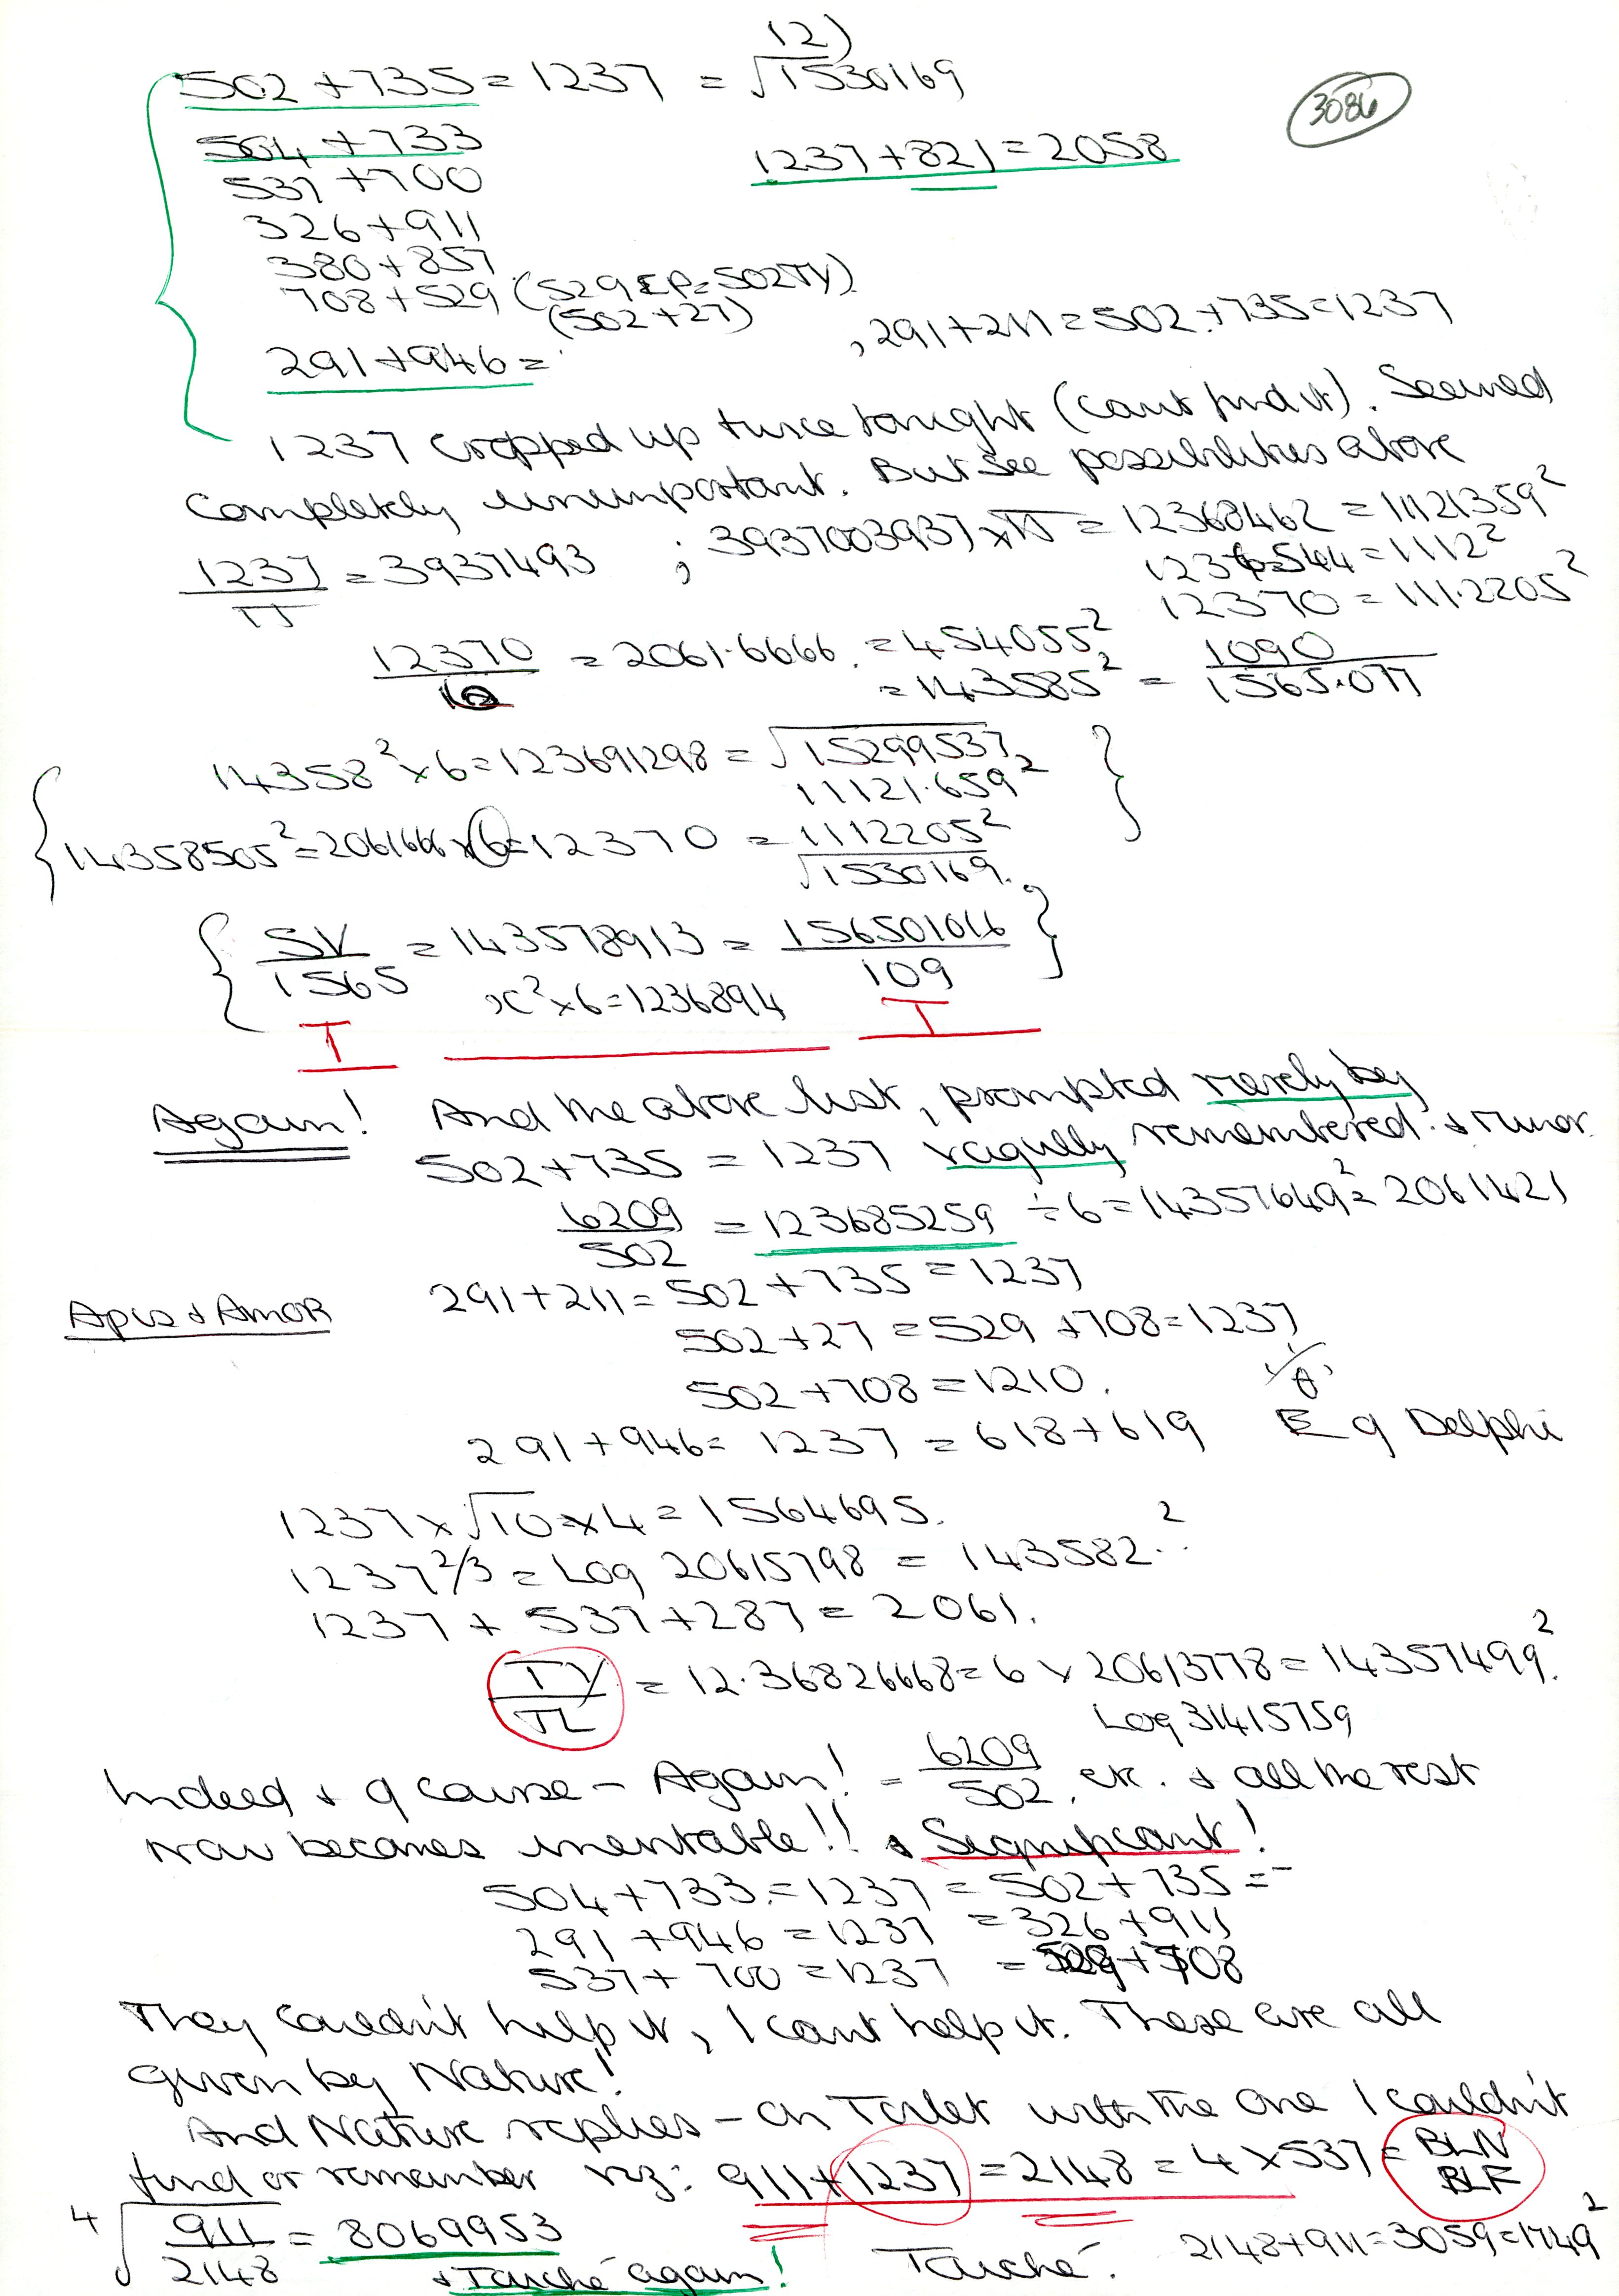 12)
502 + 735 = 1237 = √1530169
3086
504 + 733
1237 + 821 = 2058
537 + 700
326 + 911
380 + 857
708 + 529 (529 EP = 502 TY)
(502 + 27)
, 291 + 211 = 502 . + 735 = 1237
291 + 946 =
1237 cropped up twice tonight (cant find it). Seemed
completely unimportant. But see possibilities above
1237/π = 3937493 ; 3937003937 × π = 12368462 = 11121359²
1236544 = 1112²
12370 = 111.2205²
12370/6 = 2061.6666. = 454055²
= 143585² = 1090/1565.077
14358² × 6 = 123691298 = √15299537
11121.659²
14358505² = 2061666 × 6 = 12370 = 1112205²
√1530169.
SV/1565 = 143578913 = 156501016/109
x² × 6 = 1236894
T T
Again! And the above list, prompted merely by
502 + 735 = 1237 vaguely remembered. & Minor.
6209/502 = 123685259 ÷ 6 = 14357649² = 2061421
Apis & Amor 291 + 211 = 502 + 735 = 1237
502 + 27 = 529 + 708 = 1237
502 + 708 = 1210.
291 + 946 = 1237 = 618 + 619 E of Delphi
1237 × √10 × 4 = 1564695.
1237^2/3 = Log 20615798 = 143582²
1237 + 537 + 287 = 2061.
TY/TL = 12.36826668 = 6 × 20613778 = 14357499².
Log 31415759
Indeed & of course - Again! = 6209/502, etc. & all the rest
now becomes inevitable!! & Significant!
504 + 733 = 1237 = 502 + 735 =
291 + 946 = 1237 = 326 + 911
537 + 700 = 1237 = 529 + 708
They couldn't help it, I cant help it. These are all
given by Nature!
And Nature replies - on Toilet with the one I couldn't
find or remember viz: 911 + 1237 = 2148 = 4 × 537 = BLN/BLF
⁴√911/2148 = 8069953
2148 + 911 = 3059 = 1749²
& Touché again! Touché.